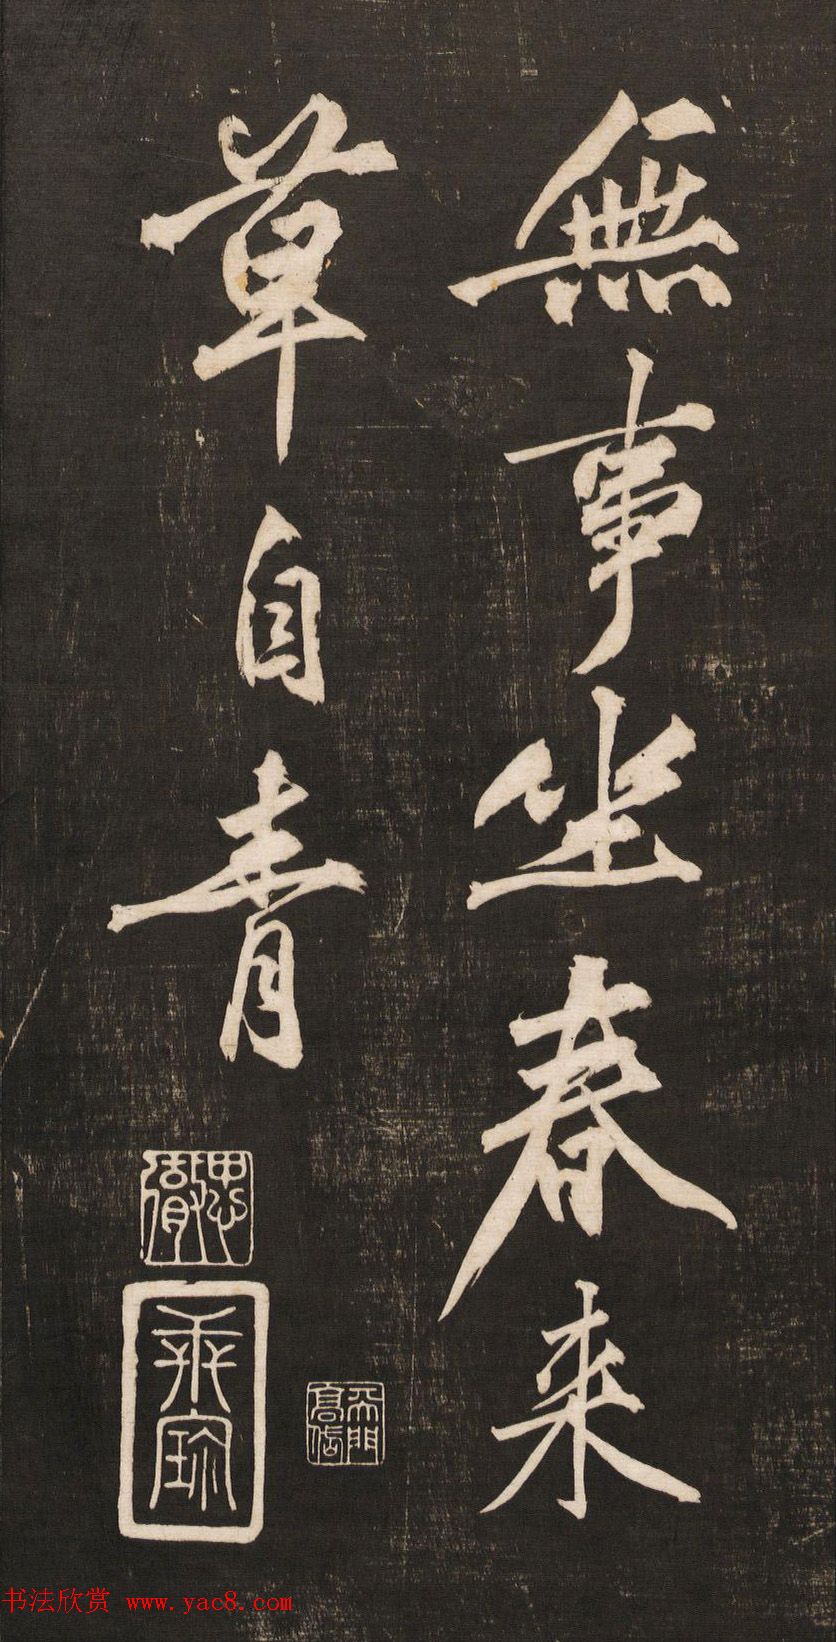 無事坐春来
草自青
书法欣赏 www.yac8.com